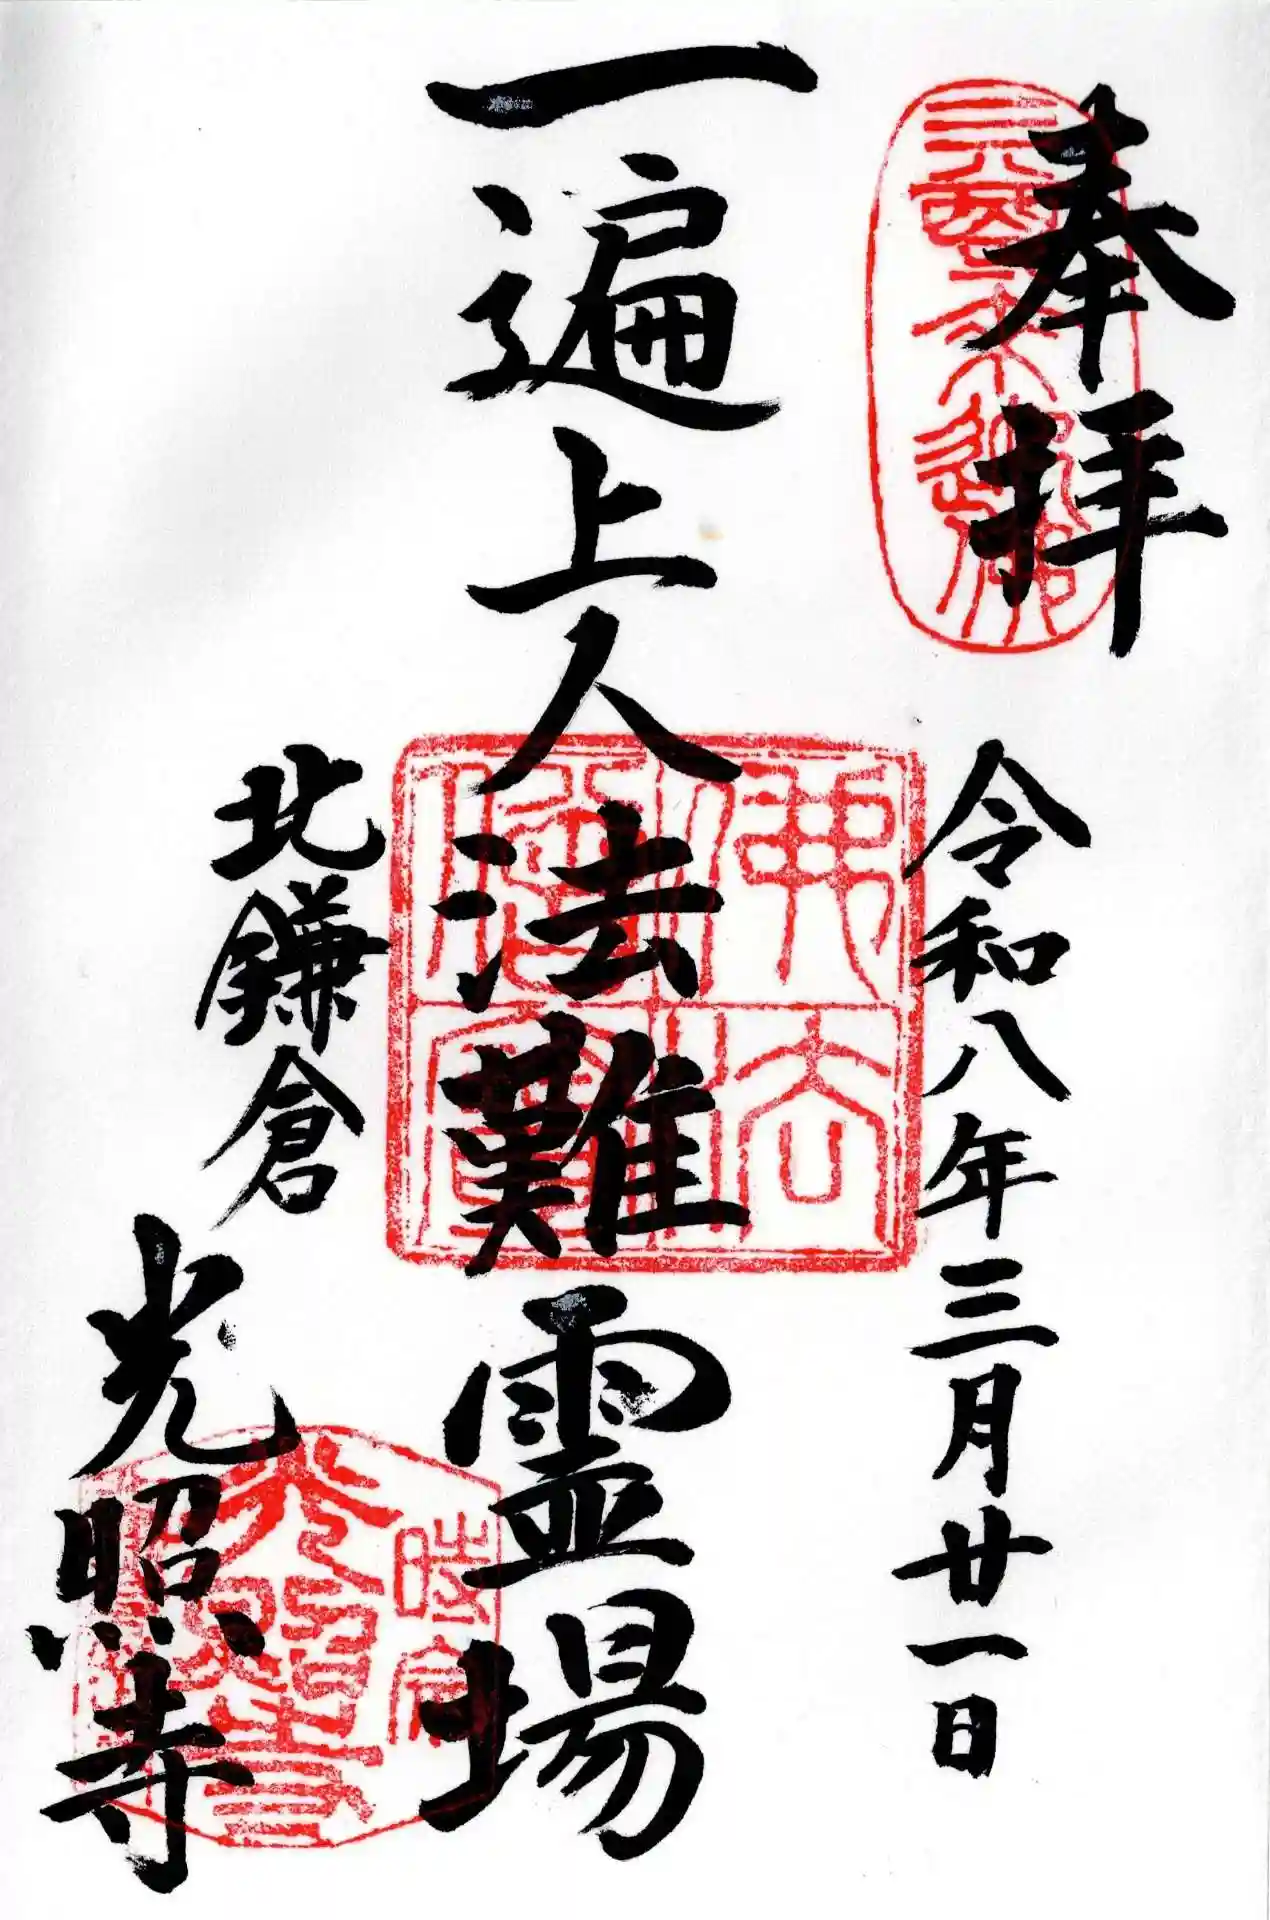 奉拝
令和八年三月廿一日
一遍上人法難霊場
北鎌倉
光照寺
佛法僧寳